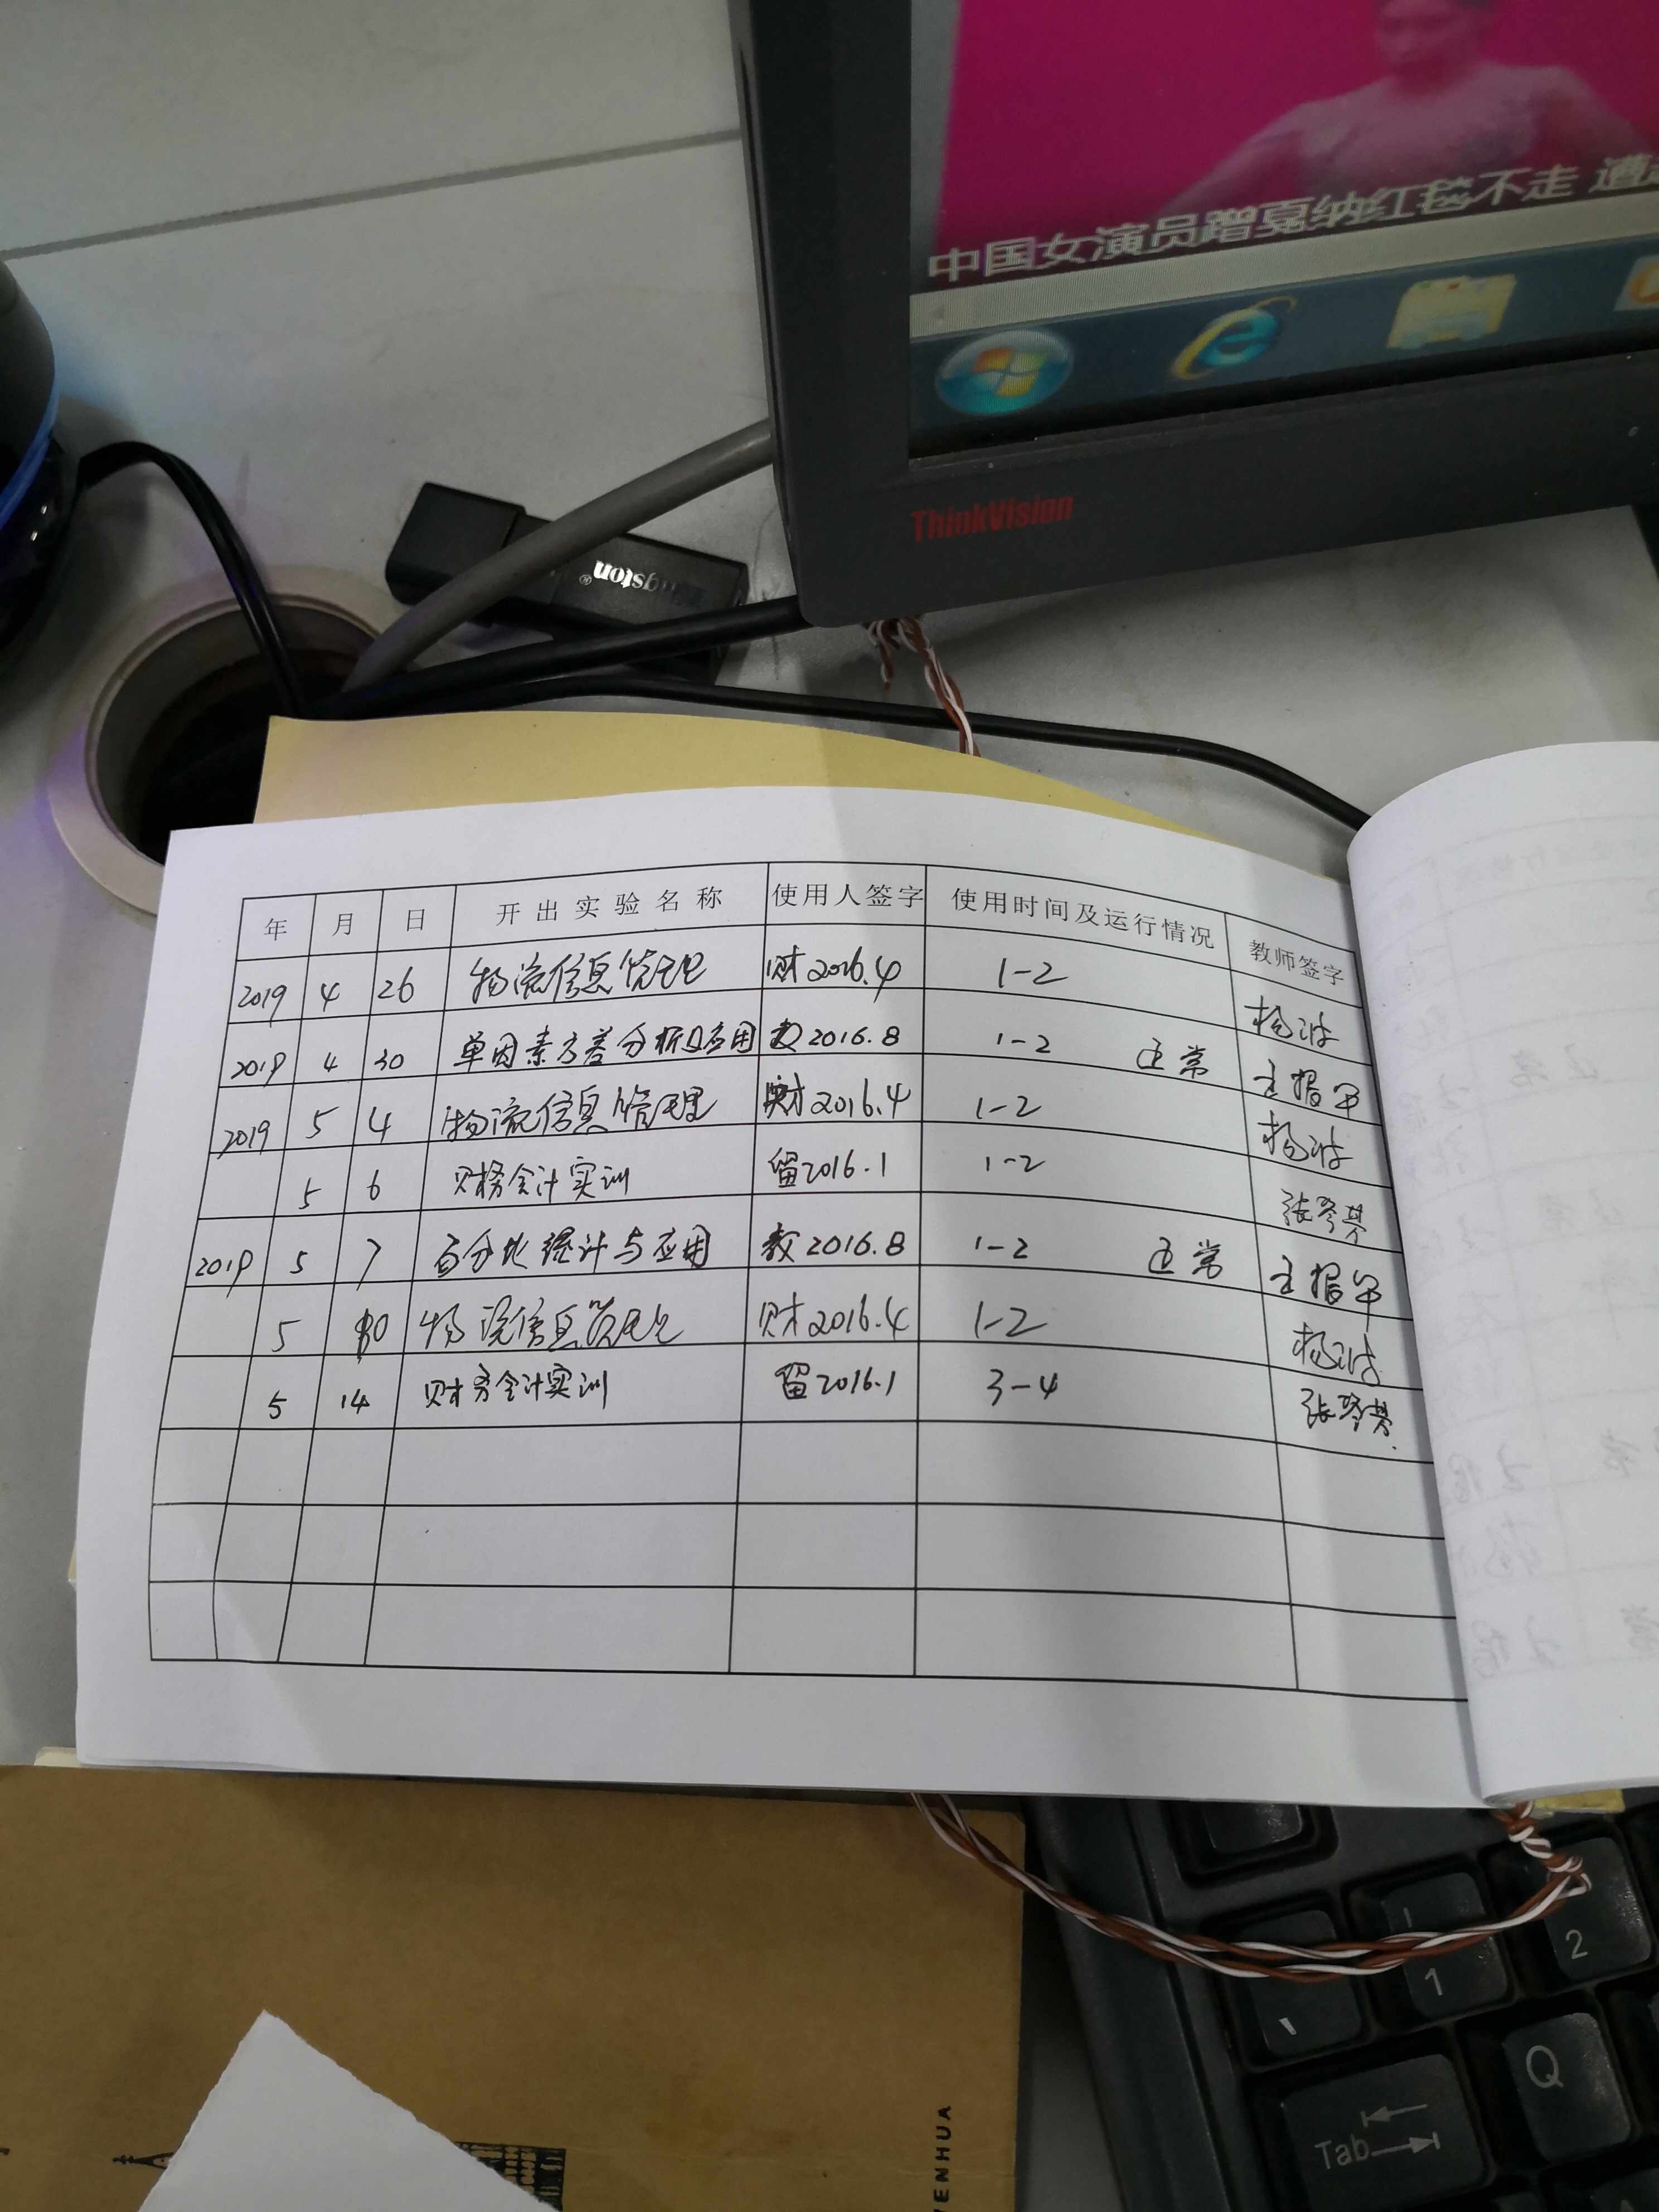 中国女演员蹭戛纳红毯不走 遭
ThinkVision
Kingston
年 月 日 开出实验名称 使用人签字 使用时间及运行情况 教师签字
2019 4 26 物流信息管理 财2016.4 1-2 杨波
2019 4 30 单因素方差分析及应用 教2016.8 1-2 正常
2019 5 4 物流信息管理 财2016.4 1-2 杨波
5 6 财务会计实训 留2016.1 1-2
2019 5 7 百分比统计与应用 教2016.8 1-2 正常
5 10 物流信息管理 财2016.4 1-2 杨波
5 14 财务会计实训 留2016.1 3-4
1
2
Q
Tab
ENHUA